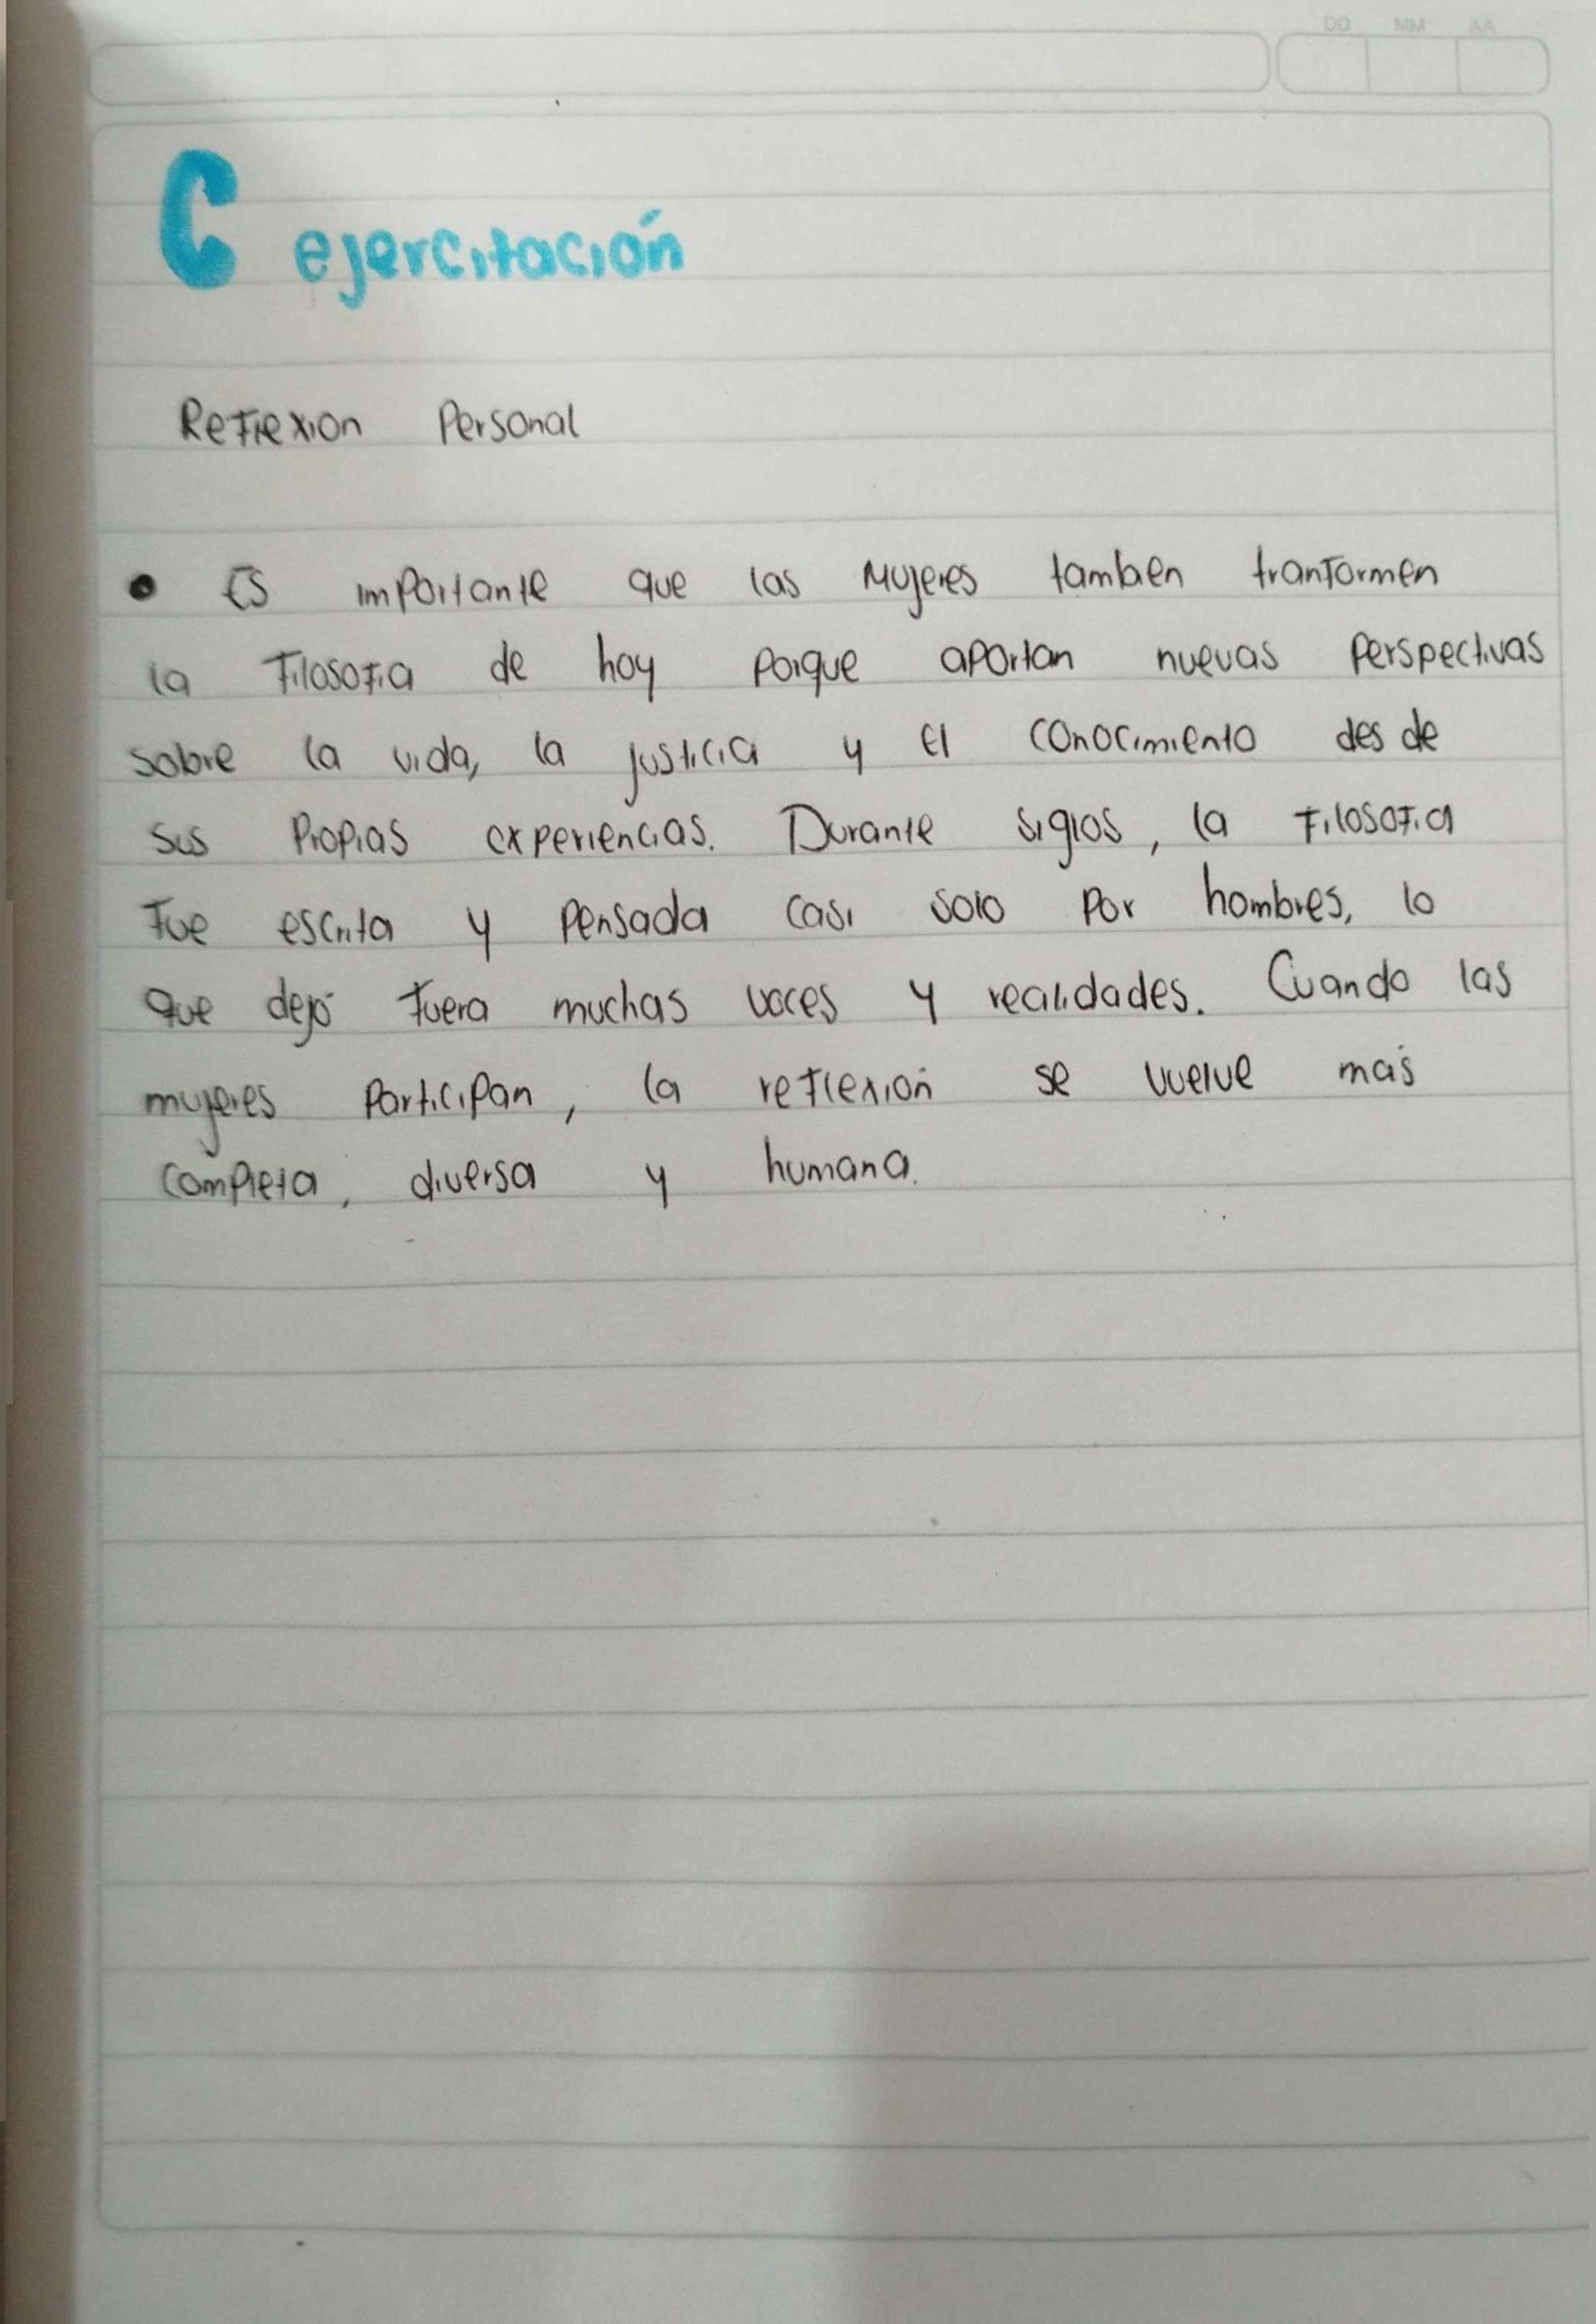 DD MM AA
C ejercitación
Reflexion Personal
• Es importante que las Mujeres tambien tranformen
la Filosofia de hoy porque aportan nuevas perspectivas
sobre la vida, la justicia y el conocimiento desde
sus propias experiencias. Durante siglos, la Filosofia
Fue escrita y pensada casi solo por hombres, lo
que dejó fuera muchas voces y realidades. Cuando las
mujeres participan, la reflexión se vuelve más
completa, diversa y humana.